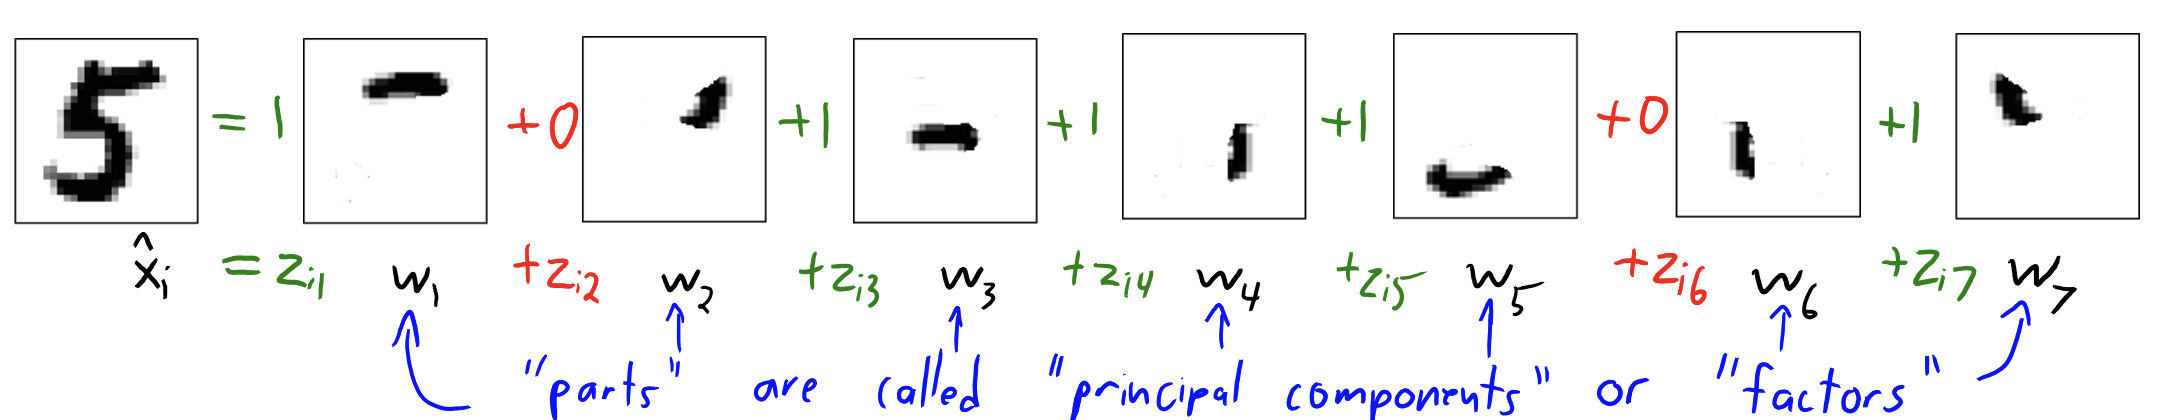 5 = 1 +0 +1 +1 +1 +0 +1
x̂ᵢ = zᵢ₁ w₁ +zᵢ₂ w₂ +zᵢ₃ w₃ +zᵢ₄ w₄ +zᵢ₅ w₅ +zᵢ₆ w₆ +zᵢ₇ w₇
"parts" are called "principal components" or "factors"